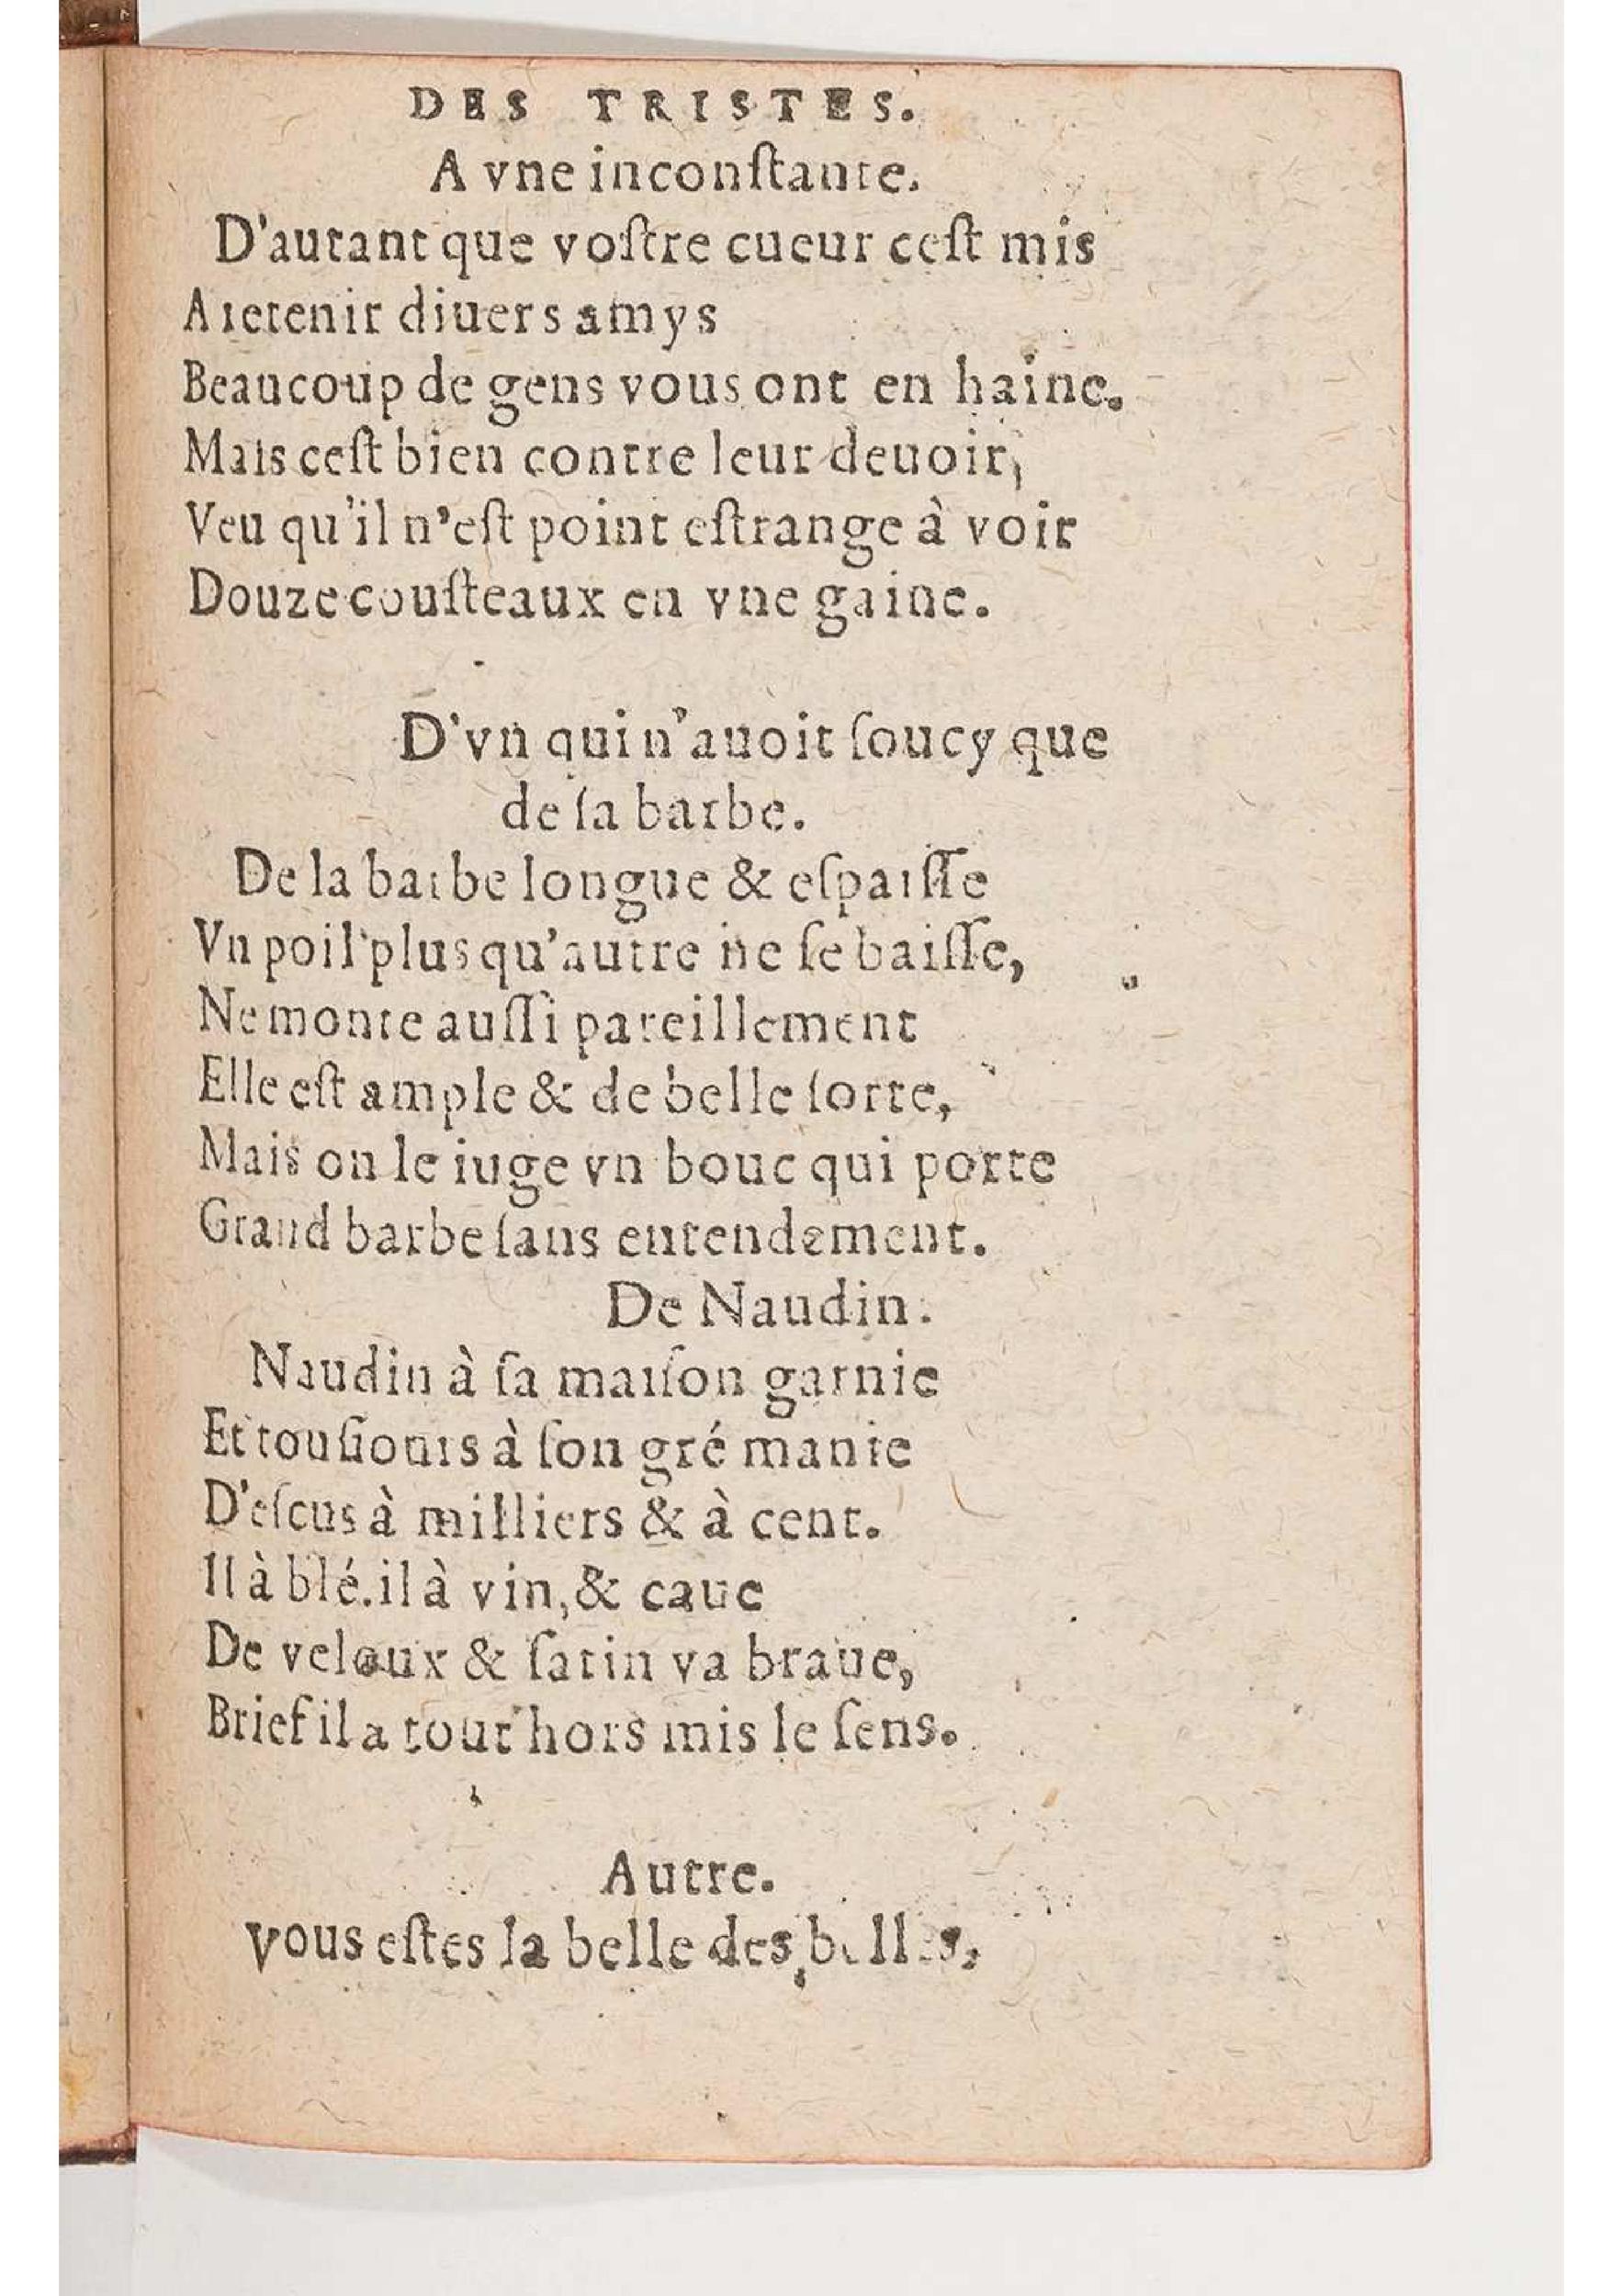 DES TRISTES.
A vne inconſtante.
D'autant que voſtre cueur ceſt mis
A retenir diuers amys
Beaucoup de gens vous ont en haine.
Mais ceſt bien contre leur deuoir,
Veu qu'il n'eſt point eſtrange à voir
Douze couſteaux en vne gaine.
D'vn qui n'auoit ſoucy que
de ſa barbe.
De la barbe longue & eſpaiſſe
Vn poil plus qu'autre ne ſe baiſſe,
Ne monte auſſi pareillement
Elle eſt ample & de belle ſorte,
Mais on le iuge vn bouc qui porte
Grand barbe ſans entendement.
De Naudin.
Naudin à ſa maiſon garnie
Et touſiours à ſon gré manie
D'eſcus à milliers & à cent.
Il à blé. il à vin, & caue
De veloux & ſatin va braue,
Brief il a tout hors mis le ſens.
Autre.
Vous eſtes la belle des belles,